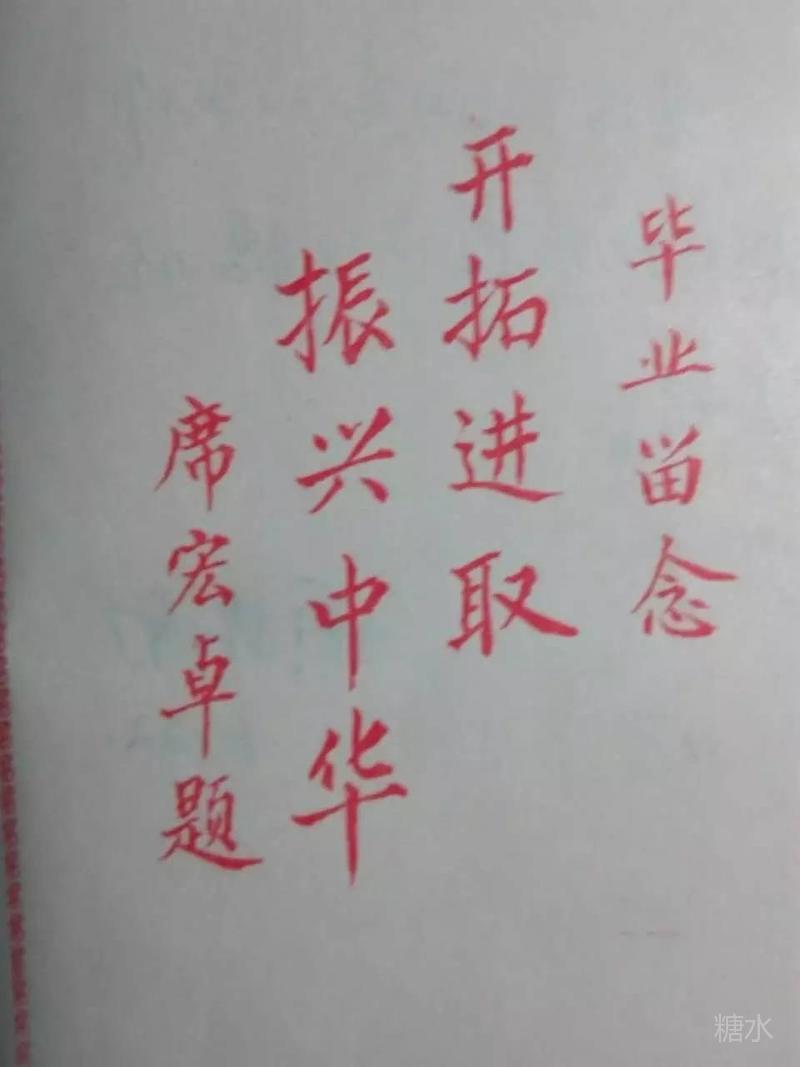 毕业留念
开拓进取
振兴中华
席宏卓题
糖水